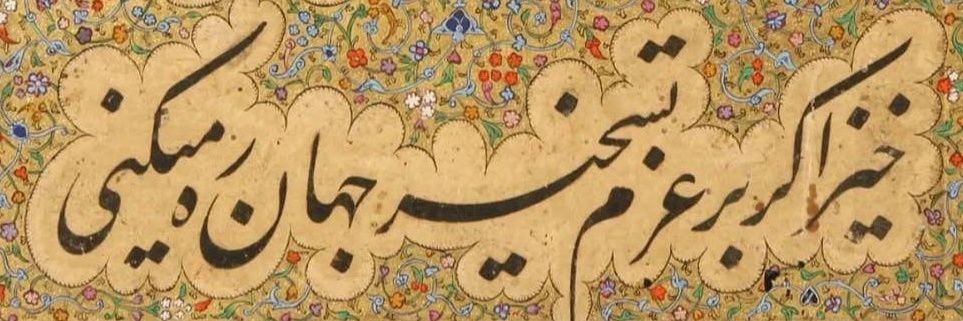 خیز اگر بر عزم تسخیر جهان ره میکنی